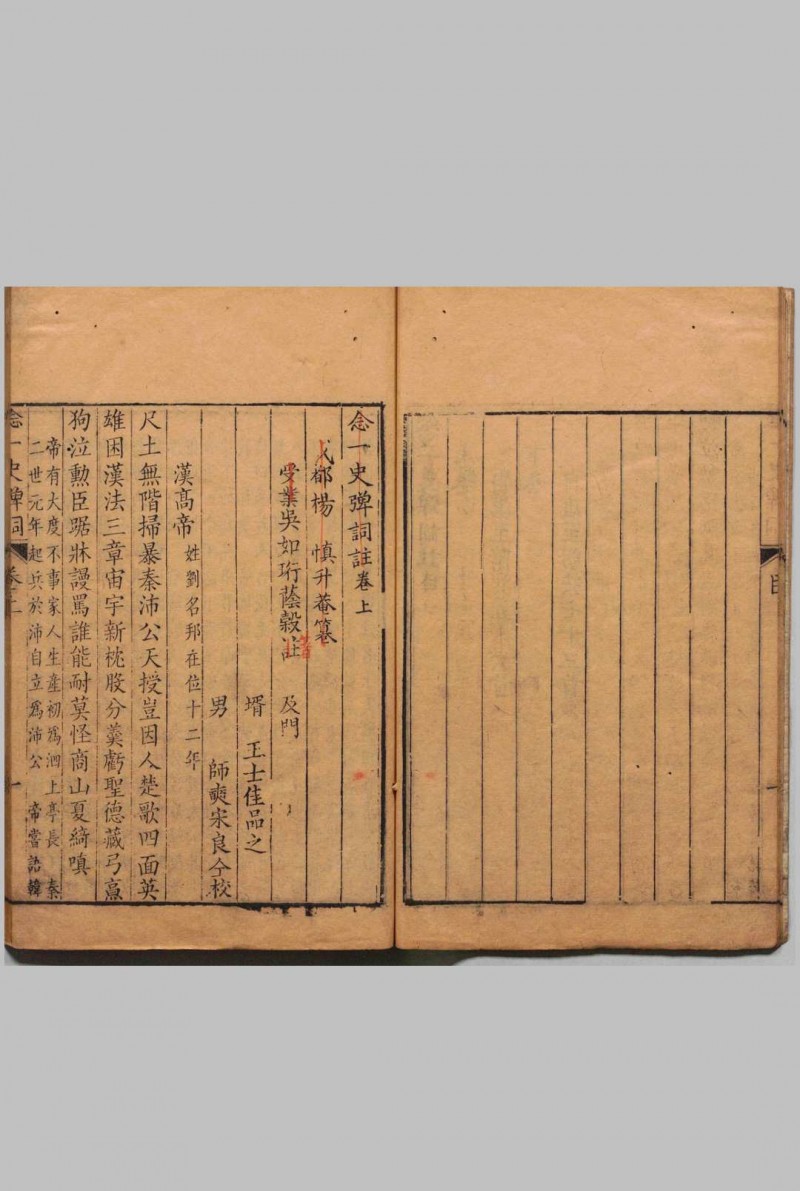 念一史彈詞註卷上
成都楊慎升菴纂
受業吳如珩蔭穀註 及門
壻 王士佳品之
男 師奭宋良仝校
漢高帝 姓劉名邦在位十二年
尺土無階掃暴秦沛公天授豈因人楚歌四面英
雄困漢法三章宙宇新枕股分羮虧聖德藏弓烹
狗泣勲臣踞牀謾罵誰能耐莫怪商山夏綺嗔
帝有大度不事家人生產初爲泗上亭長 秦
二世元年起兵於沛自立爲沛公 帝嘗語韓
念一史彈詞
一